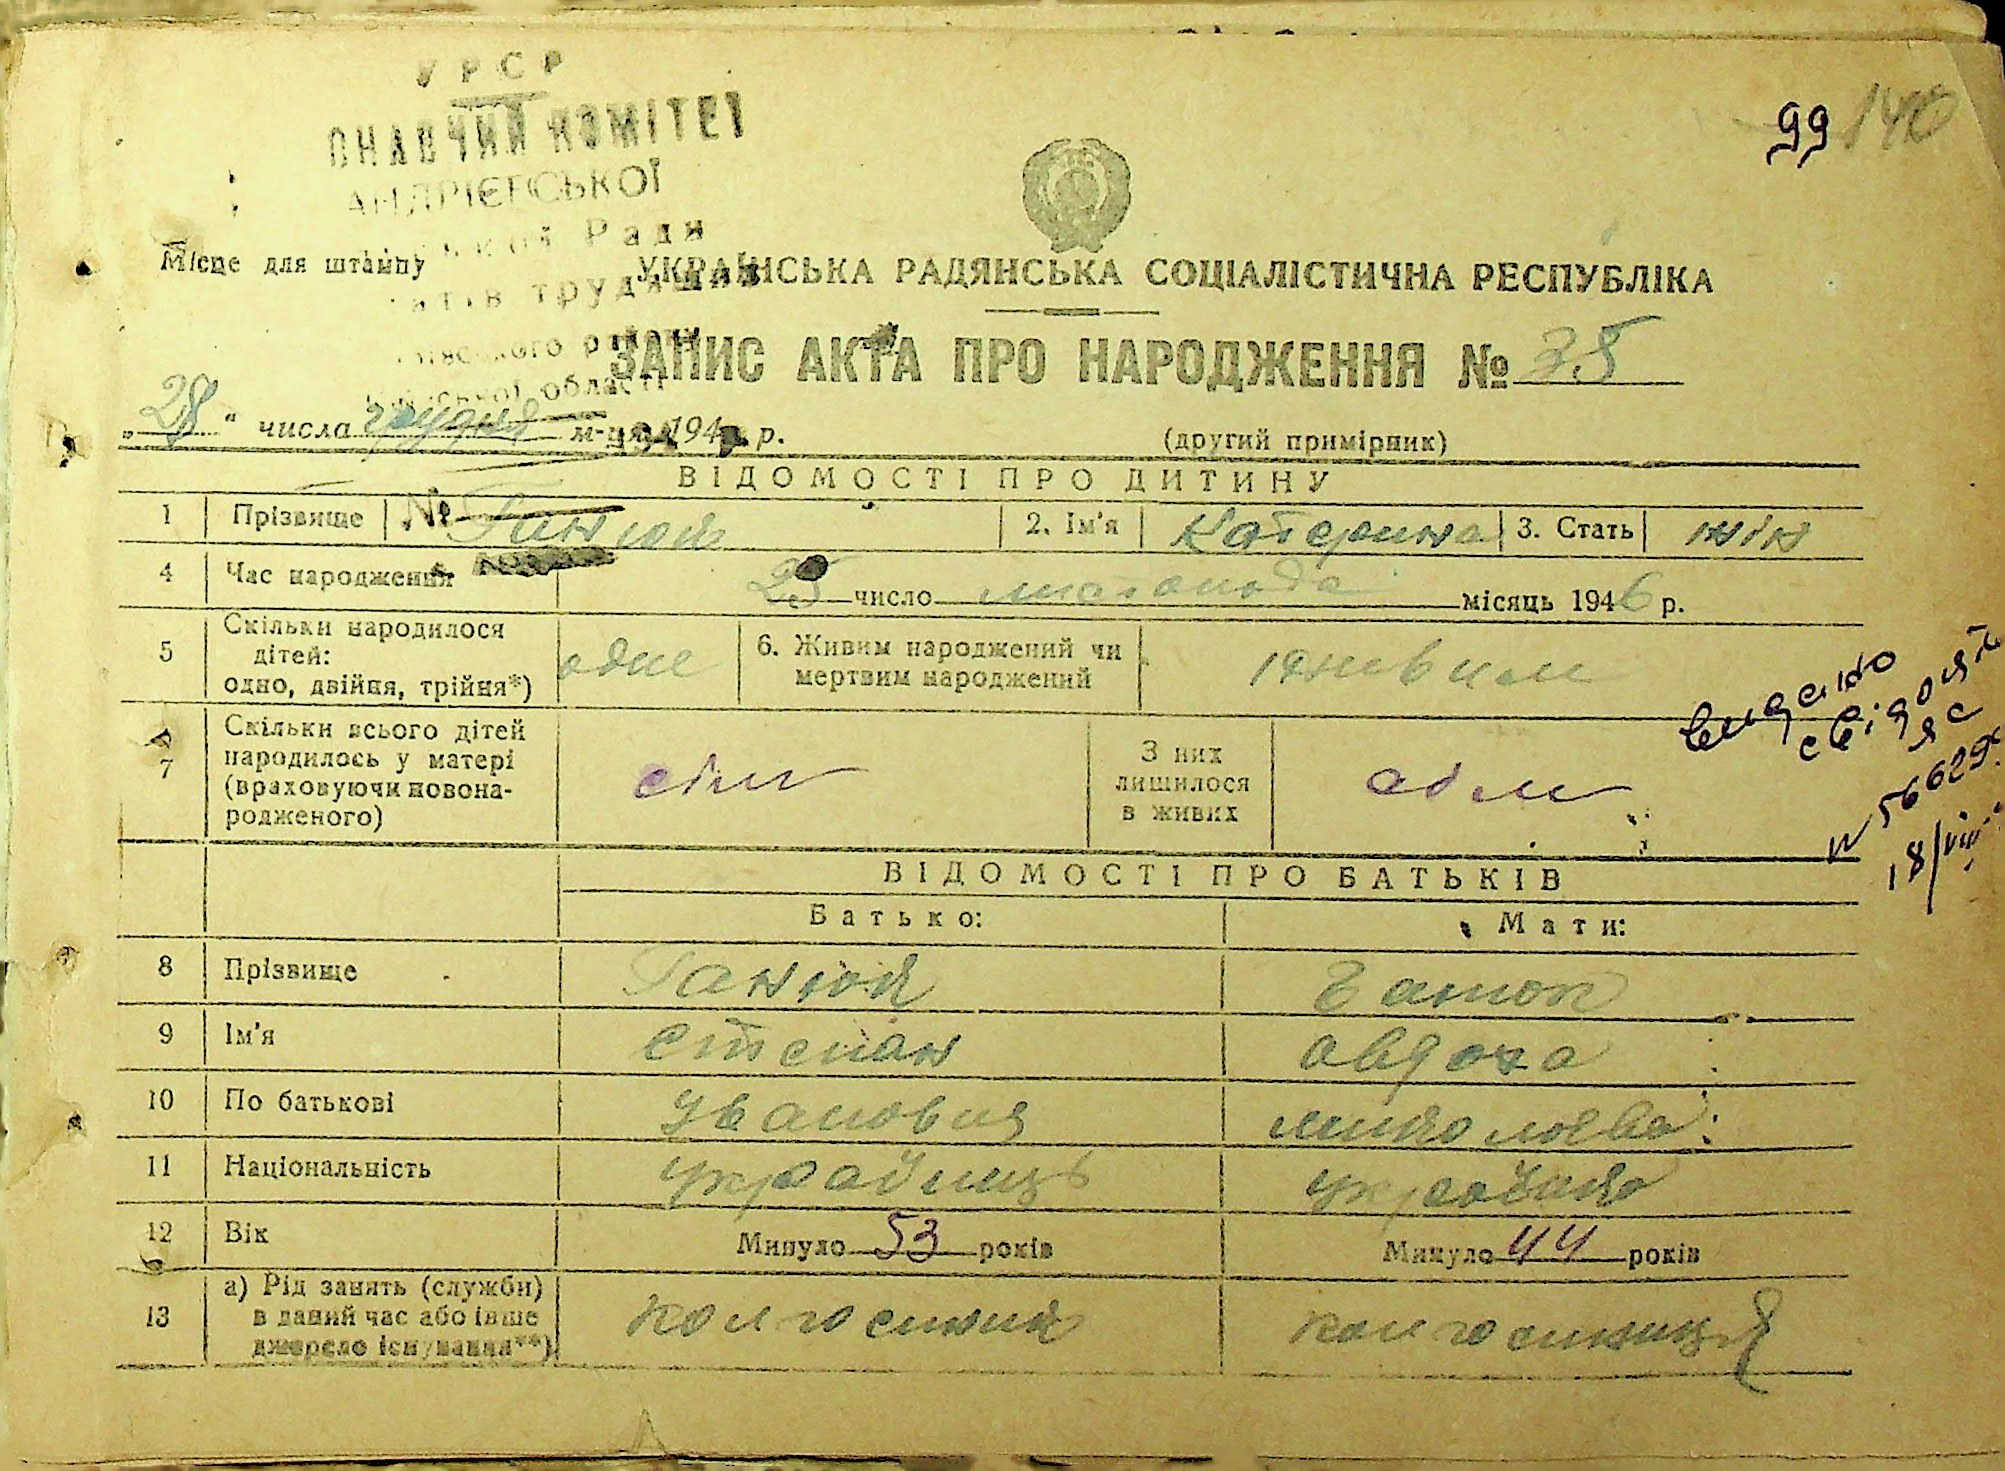 УРСР
ОНАВЧИЙ КОМІТЕТ
АНДРІЄВСЬКОЇ
Ради
трудящих
району
області
99 140
Місце для штампу
УКРАЇНСЬКА РАДЯНСЬКА СОЦІАЛІСТИЧНА РЕСПУБЛІКА
ЗАПИС АКТА ПРО НАРОДЖЕННЯ № 35
„28“ числа грудня м-ця 194 р.
(другий примірник)
ВІДОМОСТІ ПРО ДИТИНУ
1 Прізвище № Ганюк 2. Ім'я Катерина 3. Стать жін
4 Час народження 25 число листопада місяць 1946 р.
5 Скільки народилося дітей: одно, двійня, трійня*) одне 6. Живим народжений чи мертвим народжений живим
7 Скільки всього дітей народилось у матері (враховуючи новонародженого) сім З них лишилося в живих сім
видано
свідоцтв
ЯС
N 56629
18/VIII
ВІДОМОСТІ ПРО БАТЬКІВ
Батько: Мати:
8 Прізвище Ганюк Ганюк
9 Ім'я Степан Авдоха
10 По батькові Іванович Миколаєва
11 Національність Українець Українка
12 Вік Минуло 53 років Минуло 44 років
13 а) Рід занять (служби) в даний час або інше джерело існування**) колгоспник колгоспниця